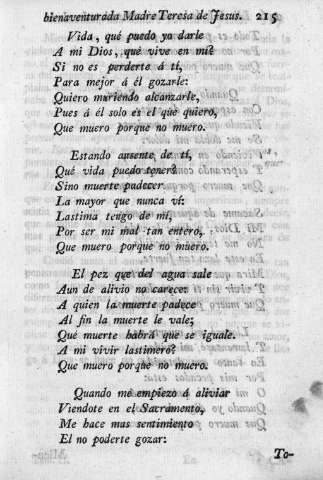 bienaventurada Madre Teresa de Jesus. 215
Vida, qué puedo yo darle
A mi Dios, que vive en mí?
Si no es perderte á tí,
Para mejor á él gozarle:
Quiero muriendo alcanzarle,
Pues á él solo es el que quiero,
Que muero porque no muero.
Estando ausente de tí,
Qué vida puedo tener?
Sino muerte padecer
La mayor que nunca ví:
Lastima tengo de mí,
Por ser mi mal tan entero,
Que muero porque no muero.
El pez que del agua sale
Aun de alivio no carece:
A quien la muerte padece
Al fin la muerte le vale;
Qué muerte habrá que se iguale.
A mi vivir lastimero?
Que muero porque no muero.
Quando me empiezo á aliviar
Viendote en el Sacramento,
Me hace mas sentimiento
El no poderte gozar:
To-